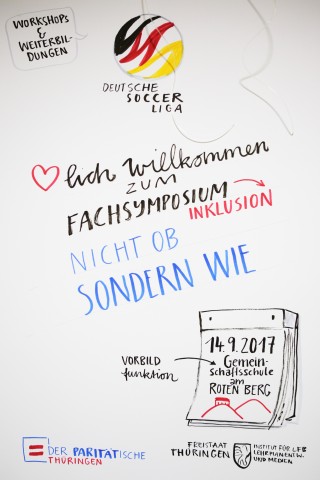 WORKSHOPS
&
WEITERBIL-
DUNGEN
DEUTSCHE
SOCCER
LIGA
lich Willkommen
ZUM
FACHSYMPOSIUM
INKLUSION
NICHT OB
SONDERN WIE
VORBILD
funktion
14.9.2017
Gemein-
schaftsschule
am
ROTEN BERG
DER PARITÄTische
THÜRINGEN
FREISTAAT
THÜRINGEN
INSTITUT FÜR
UND MEDIEN